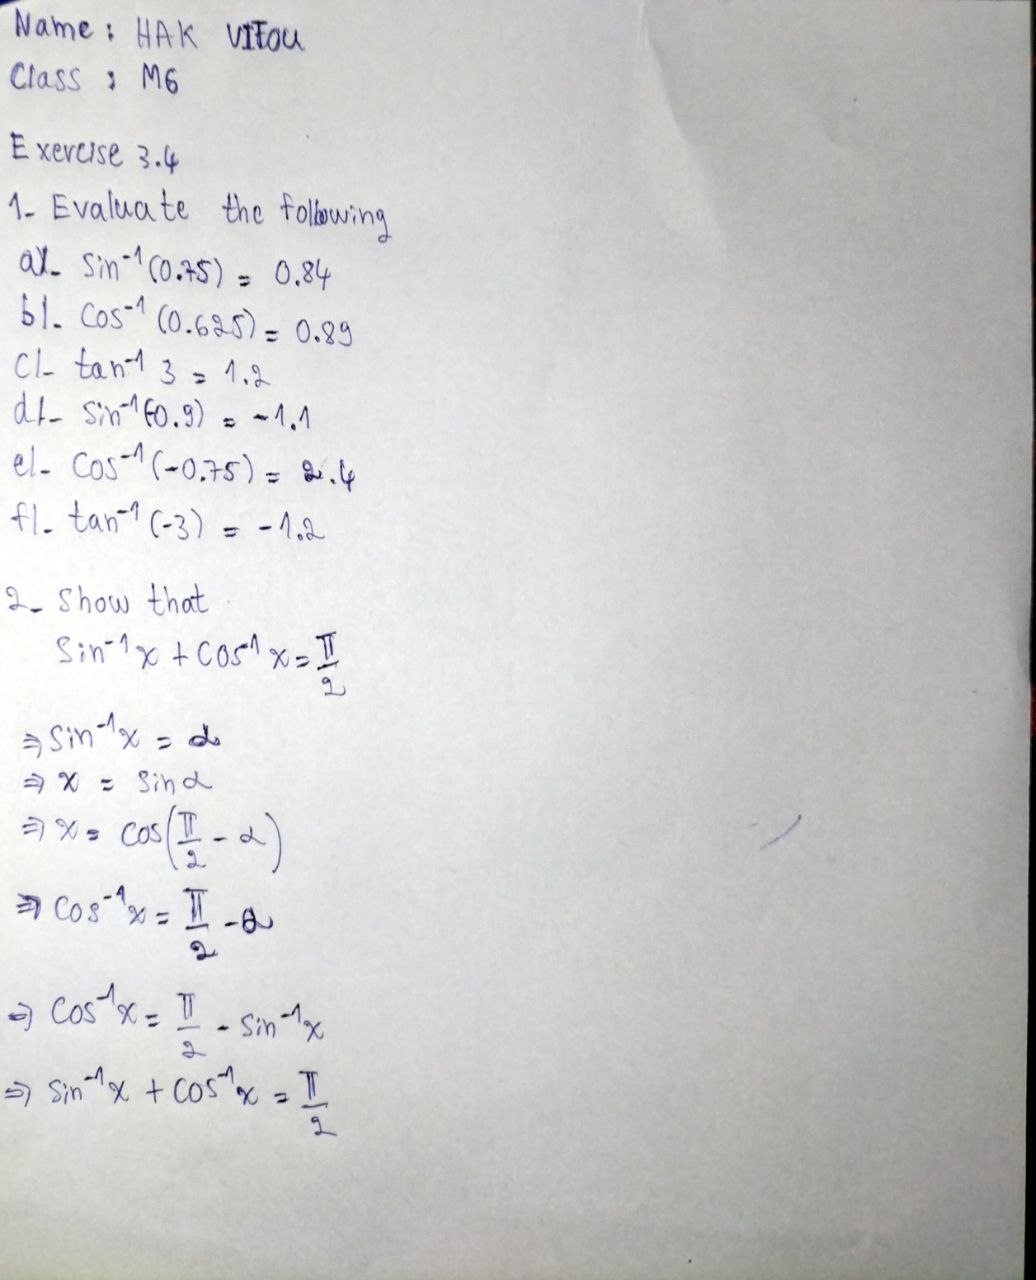 Name : HAK VITOU
Class : M6
Exercise 3.4
1- Evaluate the following
a/- sin⁻¹(0.75) = 0.84
b/- cos⁻¹(0.625) = 0.89
c/- tan⁻¹ 3 = 1.2
d/- sin⁻¹(-0.9) = -1.1
e/- cos⁻¹(-0.75) = 2.4
f/- tan⁻¹(-3) = -1.2
2- Show that
sin⁻¹x + cos⁻¹x = π/2
⇒ sin⁻¹x = α
⇒ x = sinα
⇒ x = cos(π/2 - α)
⇒ cos⁻¹x = π/2 - α
⇒ cos⁻¹x = π/2 - sin⁻¹x
⇒ sin⁻¹x + cos⁻¹x = π/2